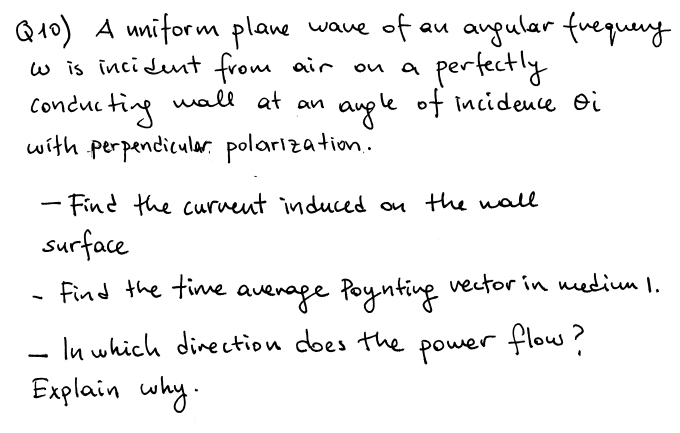 Q10) A uniform plane wave of an angular frequency
ω is incident from air on a perfectly
conducting wall at an angle of incidence θi
with perpendicular polarization.
- Find the current induced on the wall
surface
- Find the time average Poynting vector in medium 1.
- In which direction does the power flow?
Explain why.